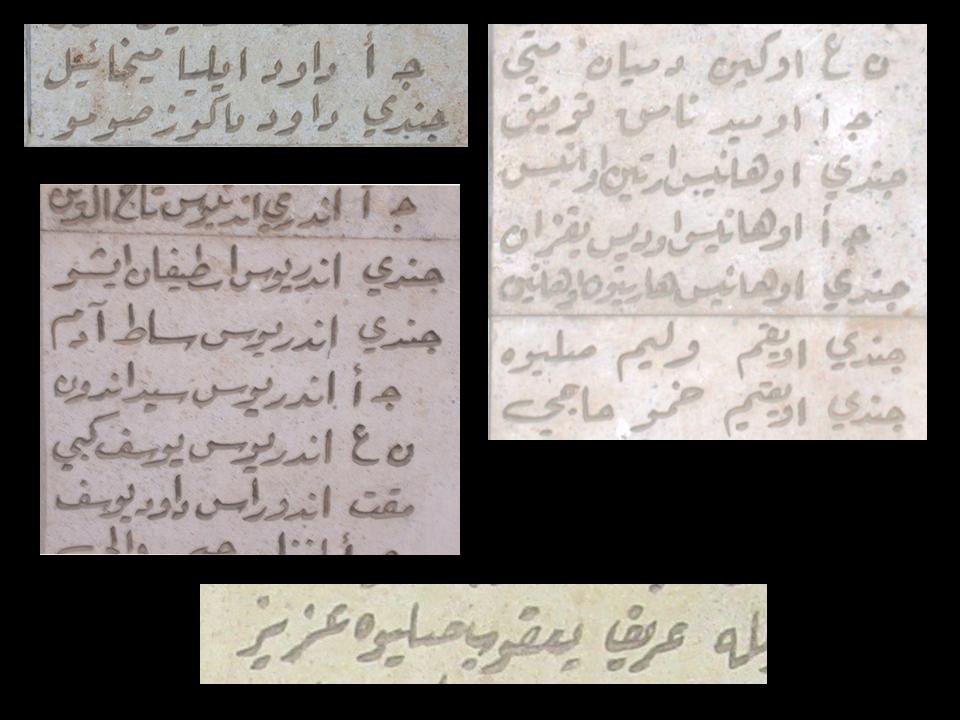 ج أ داود ايليا ميخائيل
جندي داود ماكوز صومو
ن ع اوكين دميان متي
ج أ اوميد نامس توفيق
جندي اوهانيس ارتين اوانيس
ج أ اوهانيس اوديس يقزان
جندي اوهانيس هاريتون اوهانيس
جندي اويقم وليم صليوه
جندي اويقيم خمو حاجي
ج أ اندري اندريوس تاج الدين
جندي اندريوس اسطيفان ايشو
جندي اندريوس ساط آدم
ج أ اندريوس سيداندون
ن ع اندريوس يوسف كبي
مقت اندوراس داود يوسف
عريف يعقوب صليوه عزيز